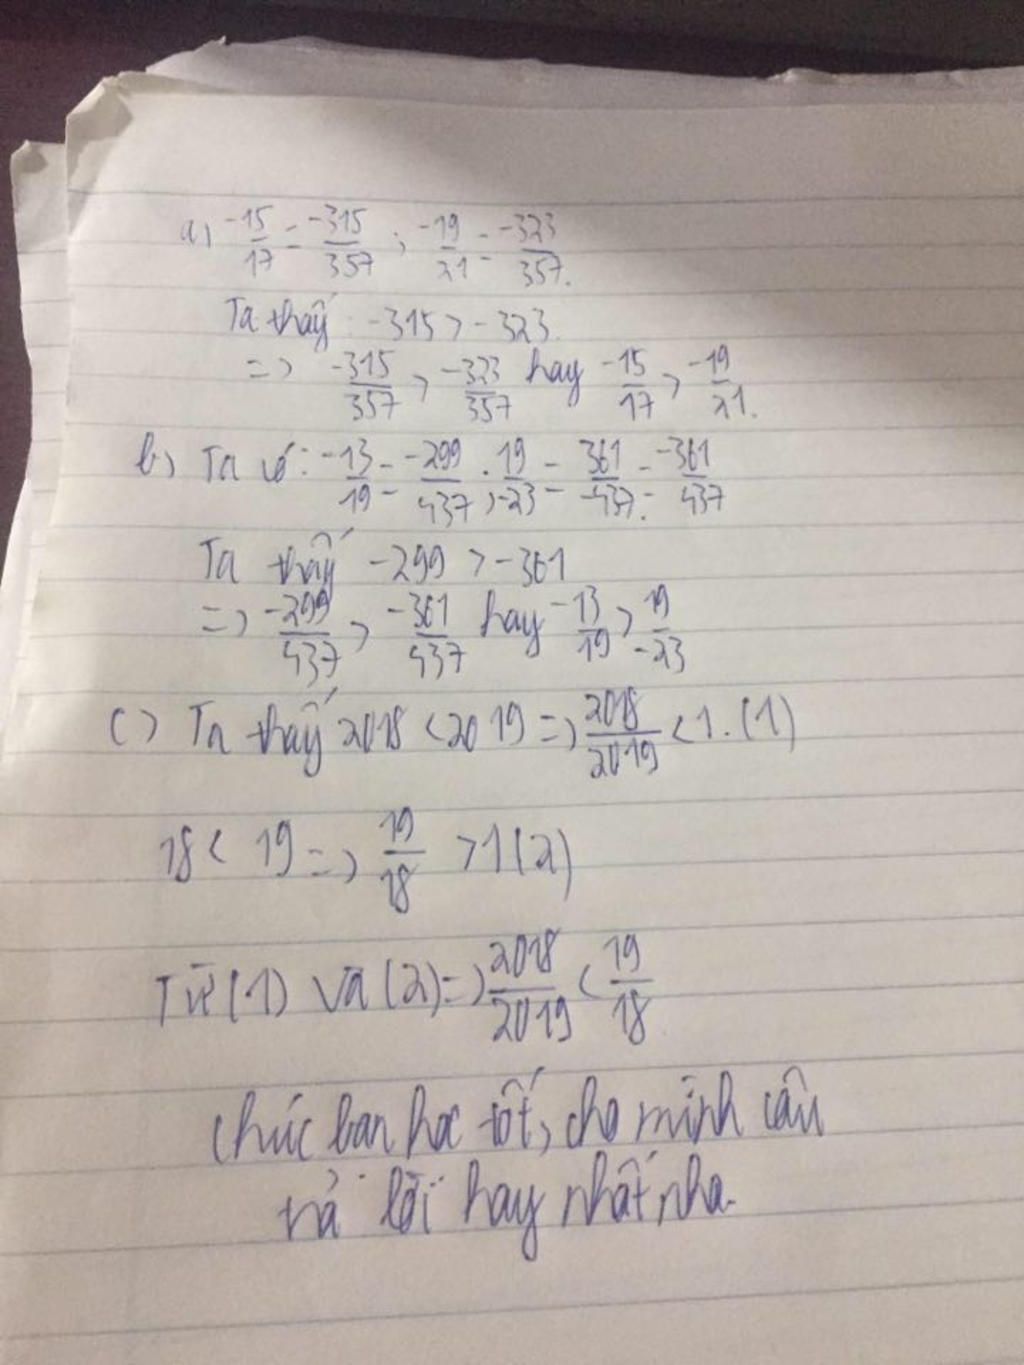 a, -15/17 = -315/357 ; -19/21 = -323/357.
Ta thấy: -315 > -323.
=> -315/357 > -323/357 hay -15/17 > -19/21.
b, Ta có: -13/19 = -299/437 ; 19/-23 = 361/-437 = -361/437
Ta thấy -299 > -361
=> -299/437 > -361/437 hay -13/19 > 19/-23
c) Ta thấy 2018 < 2019 => 2018/2019 < 1. (1)
18 < 19 => 19/18 > 1 (2)
Từ (1) và (2) => 2018/2019 < 19/18
Chúc bạn học tốt, cho mình câu
trả lời hay nhất nha.